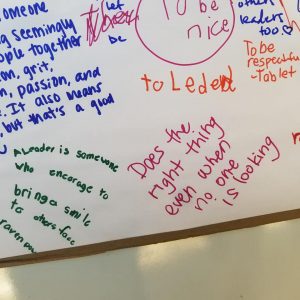 someone
seemingly
ople together
grit,
passion, and
. It also means
but that's a good
let
be
To be
nice
other
leaders
too
To be
respectful
-Tablet
to Leded
A Leader is someone
who encorage to
bring a smile
to others face
Does the
right thing
even when
no one
is looking